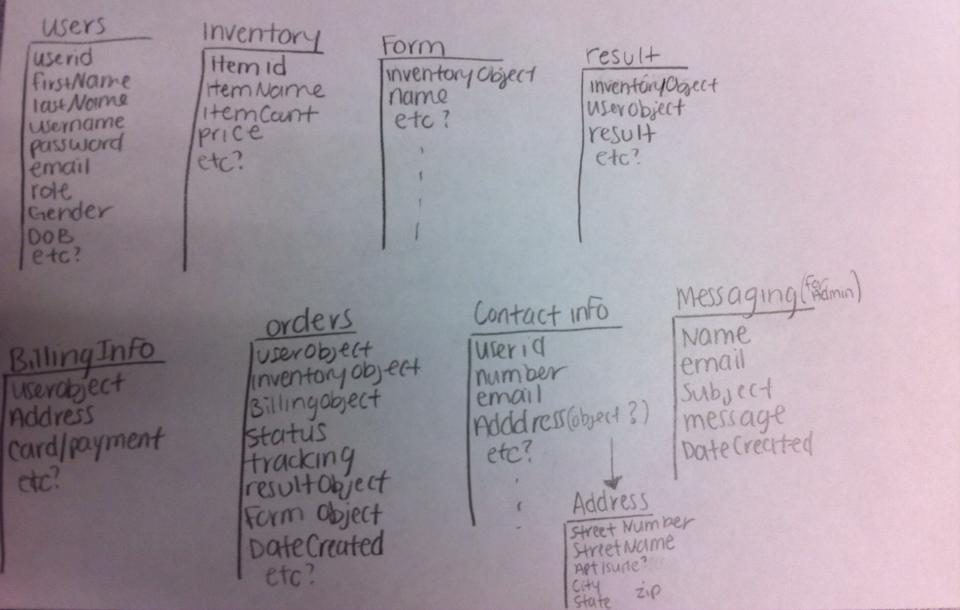 users
userid
firstName
lastName
username
password
email
role
Gender
DOB
etc?
Inventory
itemid
itemName
itemCount
price
etc?
Form
inventoryObject
name
etc?
result
inventoryObject
userobject
result
etc?
Billing Info
userobject
Address
Card/payment
etc?
orders
userobject
inventoryobject
Billingobject
status
tracking
resultObject
Form Object
DateCreated
etc?
Contact info
userid
number
email
Adddress(object?)
etc?
Address
Street Number
StreetName
City
State zip
Messaging (for Admin)
Name
email
Subject
message
DateCreated